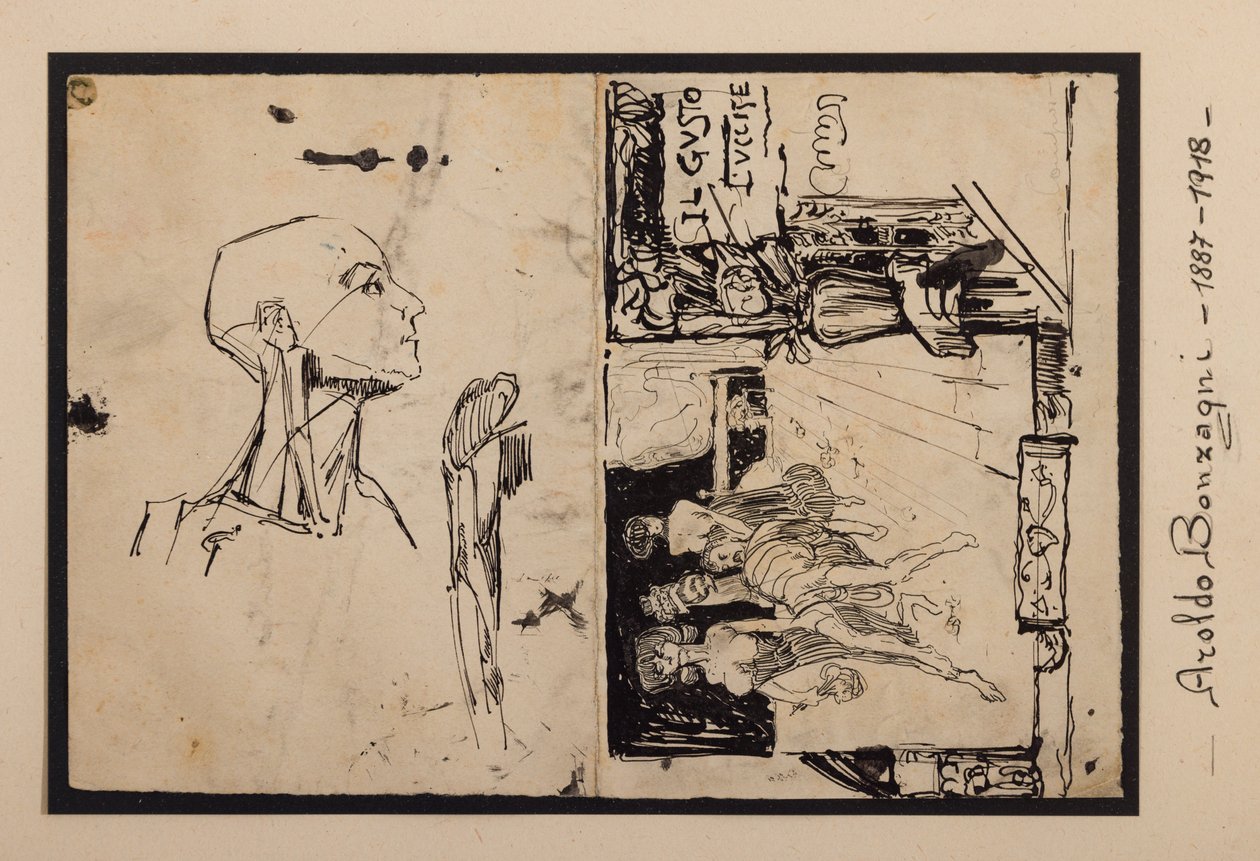 IL GVSTO
L'VCCISE
— Aroldo Bonzagni — 1887 - 1918 —